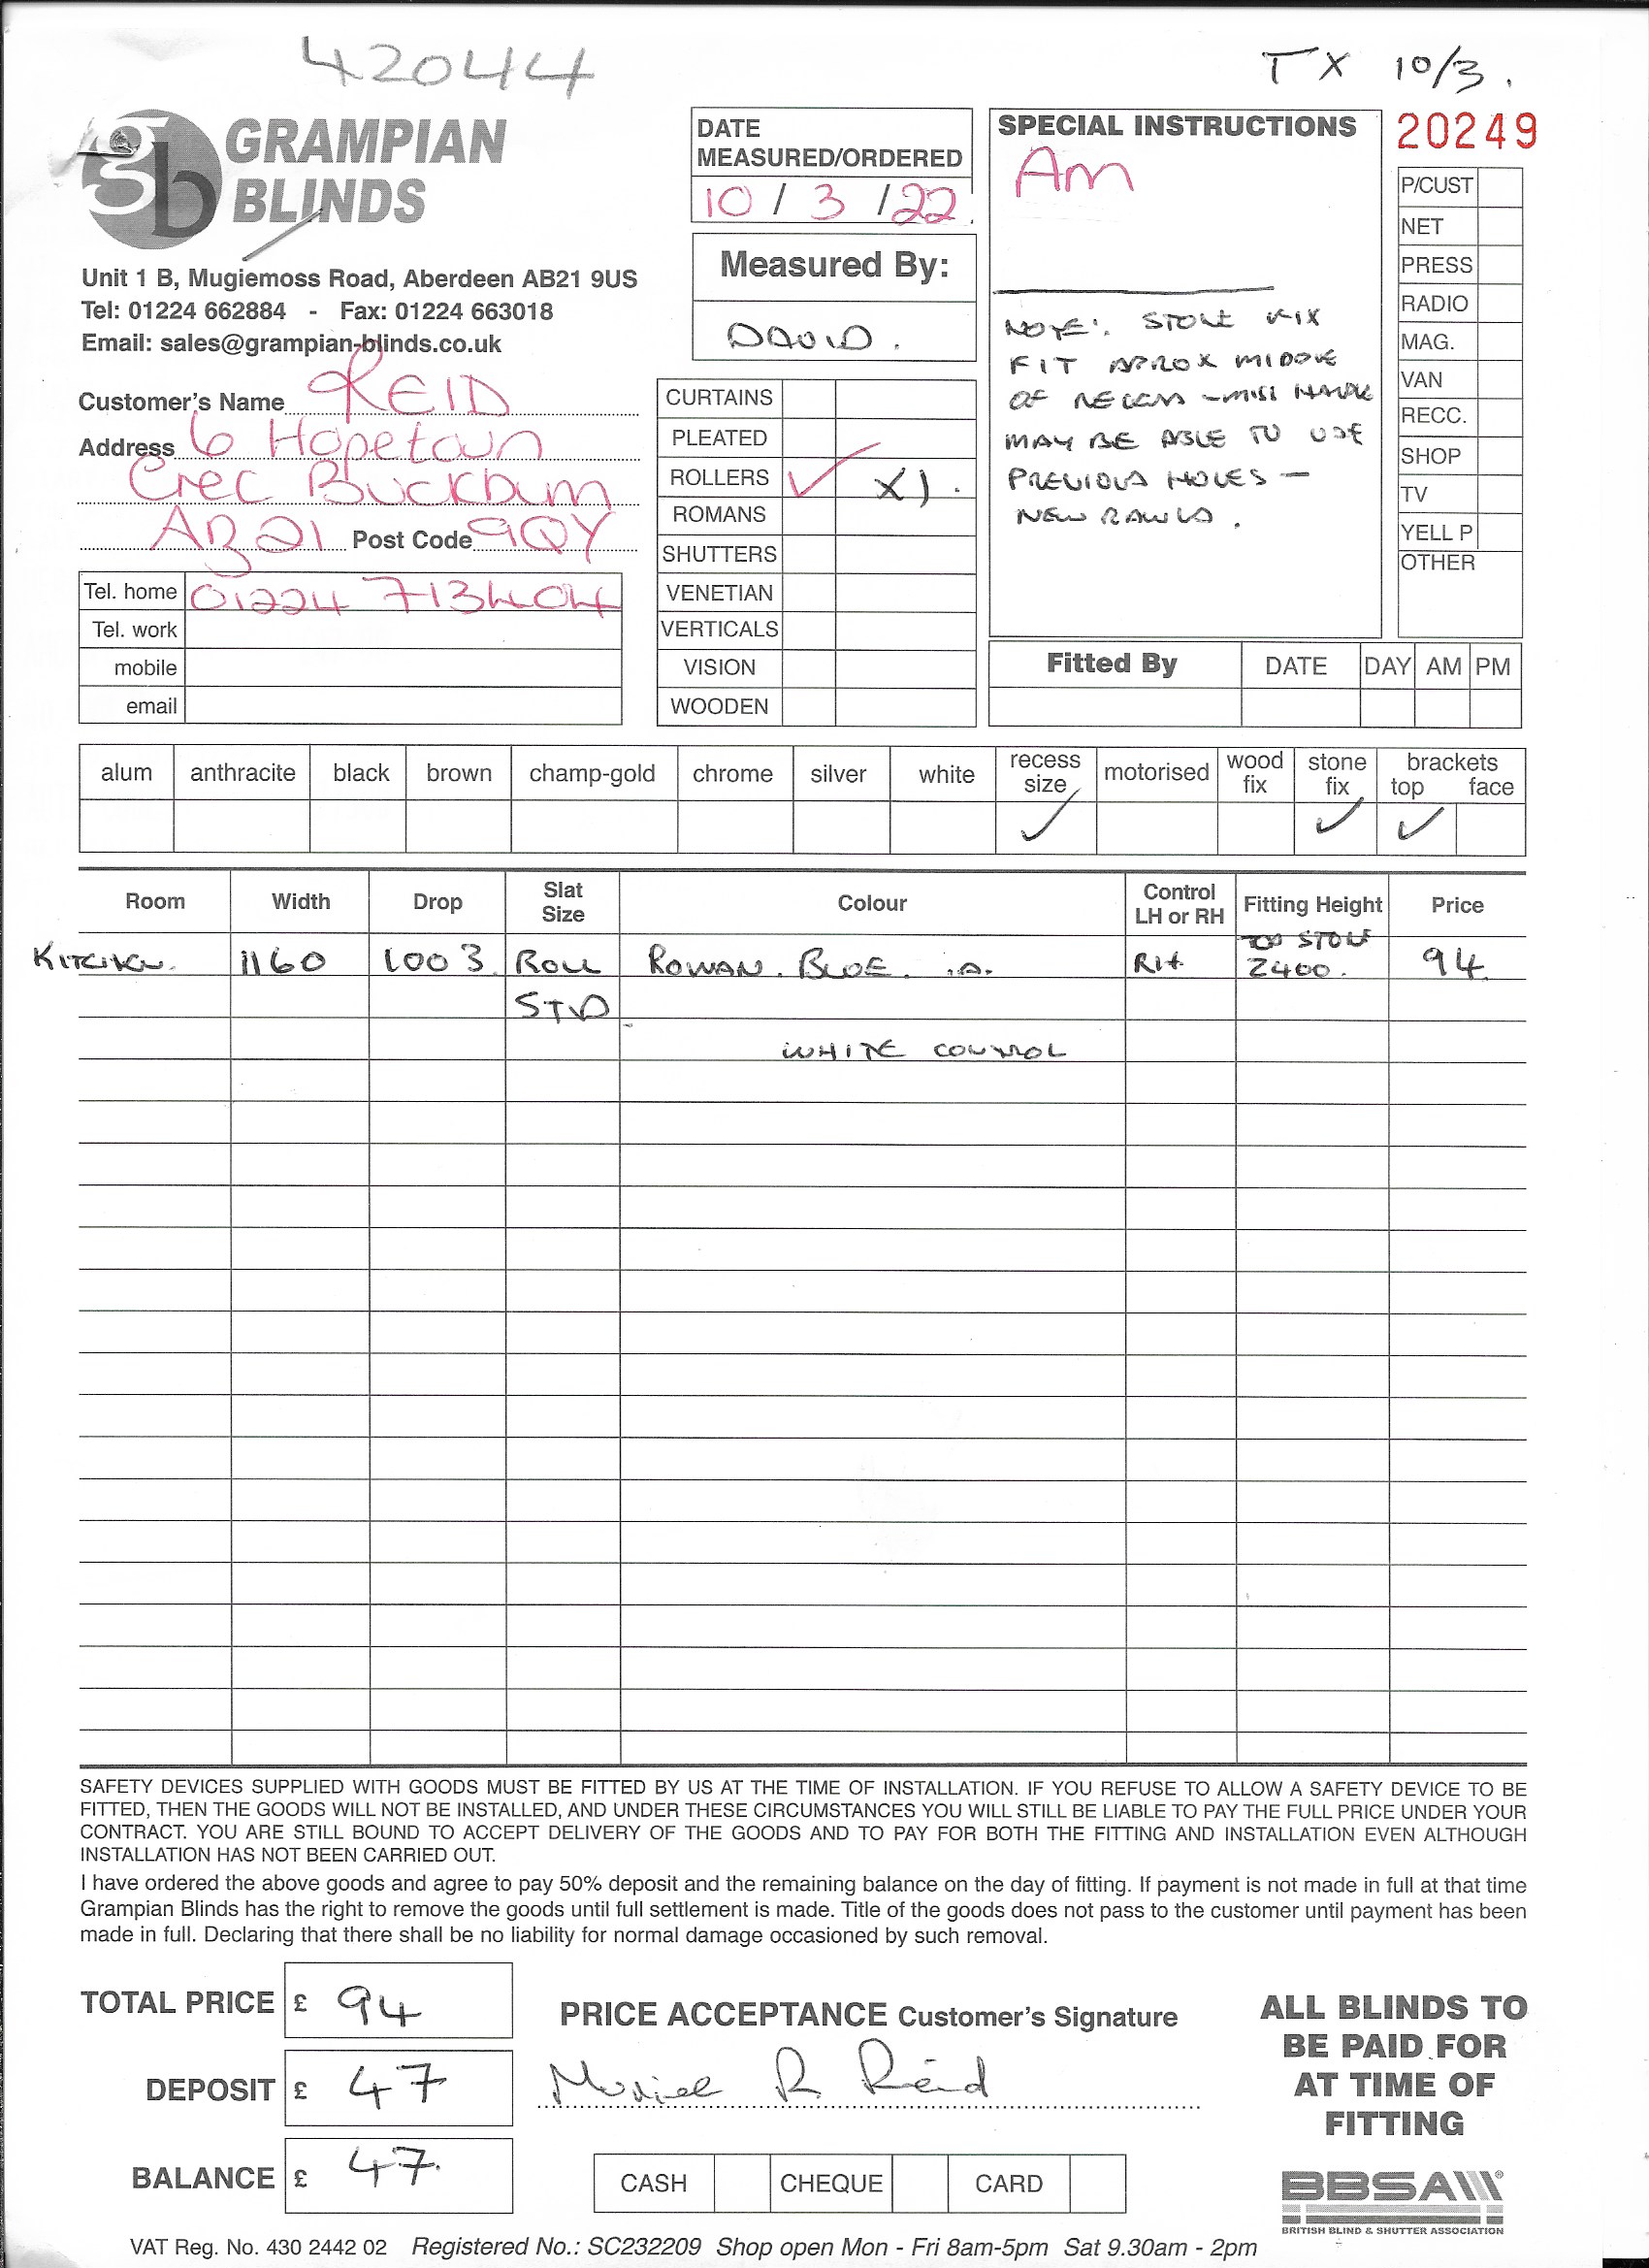 42044
TX 10/3.
gb GRAMPIAN
BLINDS
Unit 1 B, Mugiemoss Road, Aberdeen AB21 9US
Tel: 01224 662884 - Fax: 01224 663018
Email: sales@grampian-blinds.co.uk
Customer's Name REID
Address 6 Hopetoun
Cres Bucksburn
AB21 Post Code 9QY
Tel. home 01224 713404
Tel. work
mobile
email
DATE
MEASURED/ORDERED
10 / 3 / 22
Measured By:
DAVID.
CURTAINS
PLEATED
ROLLERS ✓ X1.
ROMANS
SHUTTERS
VENETIAN
VERTICALS
VISION
WOODEN
SPECIAL INSTRUCTIONS
Am
NOTE: STONE FIX
FIT APROX MIDDLE
OF RECESS - MISS HANDLE
MAY BE ABLE TO USE
PREVIOUS HOLES -
NEW RAWLS.
20249
P/CUST
NET
PRESS
RADIO
MAG.
VAN
RECC.
SHOP
TV
YELL P
OTHER
Fitted By DATE DAY AM PM
alum anthracite black brown champ-gold chrome silver white recess size motorised wood fix stone fix brackets top face
✓ ✓ ✓
Room Width Drop Slat Size Colour Control LH or RH Fitting Height Price
KITCHEN. 1160 1003 ROLL ROWAN. BLUE. .A. RH TOP STONE 2400. 94
STD
WHITE CONTROL
SAFETY DEVICES SUPPLIED WITH GOODS MUST BE FITTED BY US AT THE TIME OF INSTALLATION. IF YOU REFUSE TO ALLOW A SAFETY DEVICE TO BE
FITTED, THEN THE GOODS WILL NOT BE INSTALLED, AND UNDER THESE CIRCUMSTANCES YOU WILL STILL BE LIABLE TO PAY THE FULL PRICE UNDER YOUR
CONTRACT. YOU ARE STILL BOUND TO ACCEPT DELIVERY OF THE GOODS AND TO PAY FOR BOTH THE FITTING AND INSTALLATION EVEN ALTHOUGH
INSTALLATION HAS NOT BEEN CARRIED OUT.
I have ordered the above goods and agree to pay 50% deposit and the remaining balance on the day of fitting. If payment is not made in full at that time
Grampian Blinds has the right to remove the goods until full settlement is made. Title of the goods does not pass to the customer until payment has been
made in full. Declaring that there shall be no liability for normal damage occasioned by such removal.
TOTAL PRICE £ 94
DEPOSIT £ 47
BALANCE £ 47.
PRICE ACCEPTANCE Customer's Signature
Muriel R Reid
CASH CHEQUE CARD
ALL BLINDS TO
BE PAID FOR
AT TIME OF
FITTING
BBSA
BRITISH BLIND & SHUTTER ASSOCIATION
VAT Reg. No. 430 2442 02 Registered No.: SC232209 Shop open Mon - Fri 8am-5pm Sat 9.30am - 2pm